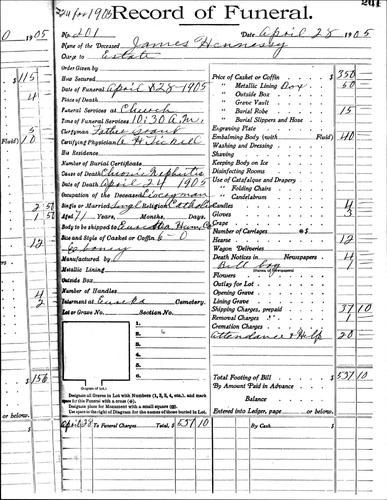 224 for 1905
201
Record of Funeral.
No. 201 Date April 28 1905
Name of the Deceased James Hennessy
Charge to Estate
Order Given by
Was Secured
Date of Funeral April 28 1905
Place of Death
Funeral Services at Church
Time of Funeral Services 10:30 A.M.
Clergyman Father
Certifying Physician
His Residence
Number of Burial Certificate
Cause of Death Chronic Nephritis
Date of Death April 24 1905
Occupation of the Deceased
Single or Married Single Religion Catholic
Aged 71 Years, Months, Days.
Body to be shipped to Eureka Hum. Co
Size and Style of Casket or Coffin 6-0
Ebony
Manufactured by
Metallic Lining
Outside Box
Number of Handles
Interment at Eureka Cemetery.
Lot or Grave No. Section No.
1.
2.
3.
4.
5.
6.
(Diagram of Lot.)
Designate all Graves in Lot with Numbers (1, 2, 3, 4, etc.), and mark
space for this Funeral with a cross (+).
Designate place for Monument with a small square (□).
Use space to the right of Diagram for the names of those buried in Lot.
April 28 To Funeral Charges Total, $ 537 10
Price of Casket or Coffin $ 350
" Metallic Lining Box 50
" Outside Box
" Grave Vault
" Burial Robe 15
" Burial Slippers and Hose
Engraving Plate
Embalming Body (with Fluid) 40
Washing and Dressing
Shaving
Keeping Body on Ice
Disinfecting Rooms
Use of Catafalque and Drapery
" Folding Chairs
" Candelabrum
Candles 4
Gloves 3
Crape
Number of Carriages @ $
Hearse 12
Wagon Deliveries
Death Notices in Newspapers 4
(Names of Newspapers)
Flowers
Outlay for Lot
Opening Grave
Lining Grave
Shipping Charges, prepaid 37 10
Removal Charges 1
Cremation Charges
Attendance & Help 20
Total Footing of Bill $ 537 10
By Amount Paid in Advance
Balance
Entered into Ledger, page or below.
By Cash $
0 1905
$ 115
4
5
Fluid) 10
2 50
1 50
12
4
2
$ 156
or below.